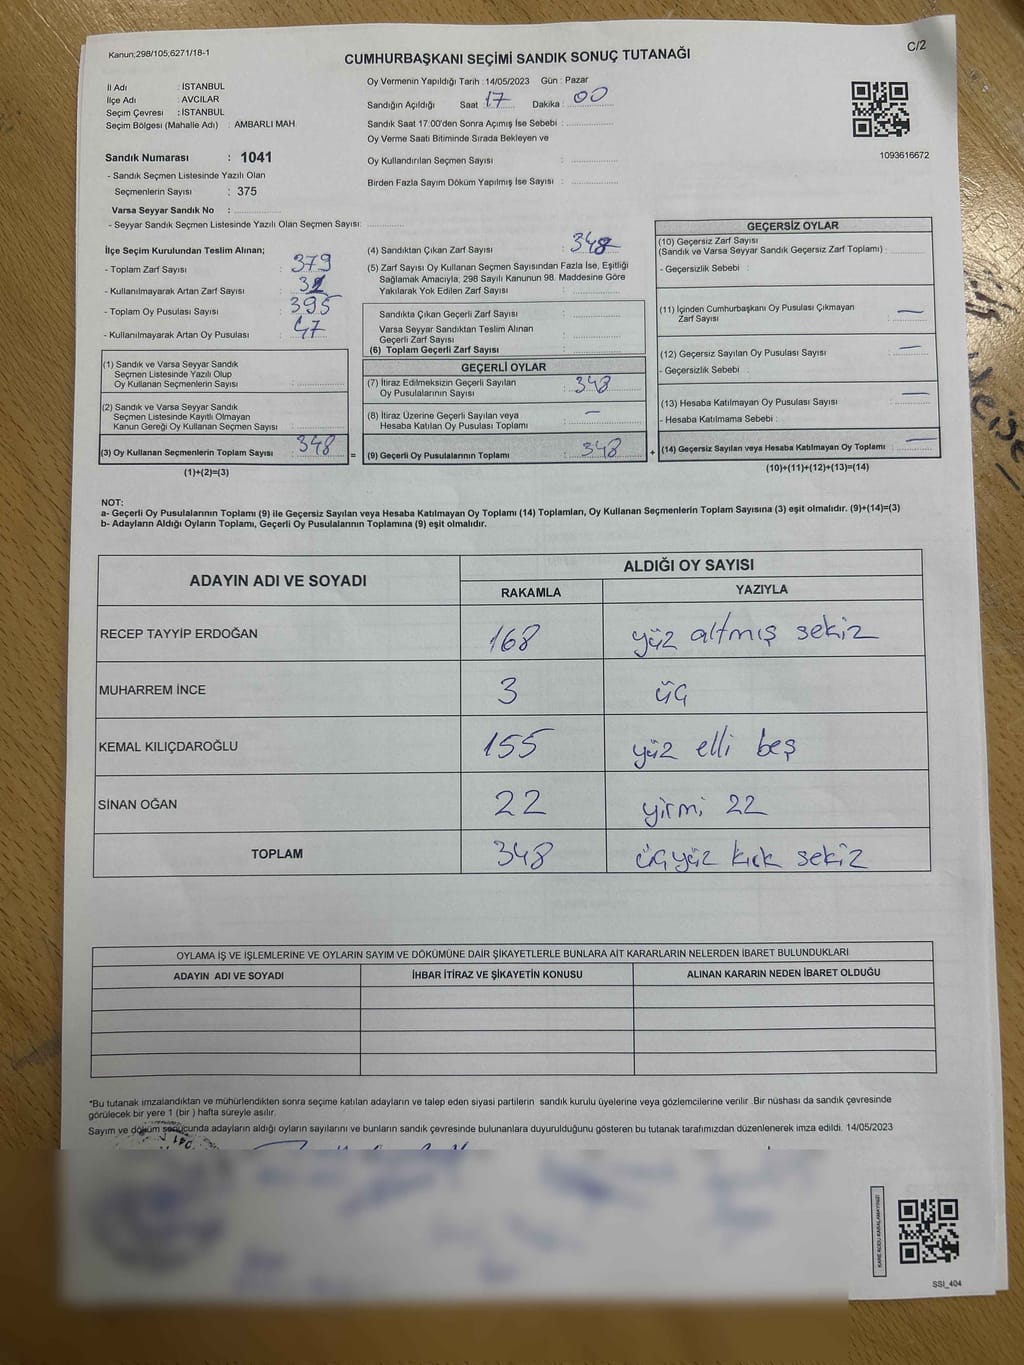 Kanun;298/105;6271/18-1
C/2
CUMHURBAŞKANI SEÇİMİ SANDIK SONUÇ TUTANAĞI
İl Adı : İSTANBUL
İlçe Adı : AVCILAR
Seçim Çevresi : İSTANBUL
Seçim Bölgesi (Mahalle Adı) : AMBARLI MAH.
Sandık Numarası : 1041
- Sandık Seçmen Listesinde Yazılı Olan
Seçmenlerin Sayısı : 375
Varsa Seyyar Sandık No :
- Seyyar Sandık Seçmen Listesinde Yazılı Olan Seçmen Sayısı:
Oy Vermenin Yapıldığı Tarih : 14/05/2023 Gün : Pazar
Sandığın Açıldığı Saat 17 Dakika : 00
Sandık Saat 17:00'den Sonra Açımış İse Sebebi :
Oy Verme Saati Bitiminde Sırada Bekleyen ve
Oy Kullandırılan Seçmen Sayısı :
Birden Fazla Sayım Döküm Yapılmış İse Sayısı :
1093616672
İlçe Seçim Kurulundan Teslim Alınan;
- Toplam Zarf Sayısı : 379
- Kullanılmayarak Artan Zarf Sayısı :
- Toplam Oy Pusulası Sayısı : 395
- Kullanılmayarak Artan Oy Pusulası : 47
(1) Sandık ve Varsa Seyyar Sandık
Seçmen Listesinde Yazılı Olup
Oy Kullanan Seçmenlerin Sayısı :
(2) Sandık ve Varsa Seyyar Sandık
Seçmen Listesinde Kayıtlı Olmayan
Kanun Gereği Oy Kullanan Seçmen Sayısı :
(3) Oy Kullanan Seçmenlerin Toplam Sayısı : 348 =
(1)+(2)=(3)
(4) Sandıktan Çıkan Zarf Sayısı : 348
(5) Zarf Sayısı Oy Kullanan Seçmen Sayısından Fazla İse, Eşitliği
Sağlamak Amacıyla, 298 Sayılı Kanunun 98. Maddesine Göre
Yakılarak Yok Edilen Zarf Sayısı :
Sandıkta Çıkan Geçerli Zarf Sayısı :
Varsa Seyyar Sandıktan Teslim Alınan
Geçerli Zarf Sayısı :
(6) Toplam Geçerli Zarf Sayısı :
GEÇERLİ OYLAR
(7) İtiraz Edilmeksizin Geçerli Sayılan
Oy Pusulalarının Sayısı : 348
(8) İtiraz Üzerine Geçerli Sayılan veya
Hesaba Katılan Oy Pusulası Toplamı : —
(9) Geçerli Oy Pusulalarının Toplamı : 348 +
GEÇERSİZ OYLAR
(10) Geçersiz Zarf Sayısı
(Sandık ve Varsa Seyyar Sandık Geçersiz Zarf Toplamı) :
- Geçersizlik Sebebi :
(11) İçinden Cumhurbaşkanı Oy Pusulası Çıkmayan
Zarf Sayısı : —
(12) Geçersiz Sayılan Oy Pusulası Sayısı : —
- Geçersizlik Sebebi :
(13) Hesaba Katılmayan Oy Pusulası Sayısı : —
- Hesaba Katılmama Sebebi :
(14) Geçersiz Sayılan veya Hesaba Katılmayan Oy Toplamı : —
(10)+(11)+(12)+(13)=(14)
NOT:
a- Geçerli Oy Pusulalarının Toplamı (9) ile Geçersiz Sayılan veya Hesaba Katılmayan Oy Toplamı (14) Toplamları, Oy Kullanan Seçmenlerin Toplam Sayısına (3) eşit olmalıdır. (9)+(14)=(3)
b- Adayların Aldığı Oyların Toplamı, Geçerli Oy Pusulalarının Toplamına (9) eşit olmalıdır.
ADAYIN ADI VE SOYADI ALDIĞI OY SAYISI
RAKAMLA YAZIYLA
RECEP TAYYİP ERDOĞAN 168 yüz altmış sekiz
MUHARREM İNCE 3 üç
KEMAL KILIÇDAROĞLU 155 yüz elli beş
SİNAN OĞAN 22 yirmi 22
TOPLAM 348 üçyüz kırk sekiz
OYLAMA İŞ VE İŞLEMLERİNE VE OYLARIN SAYIM VE DÖKÜMÜNE DAİR ŞİKAYETLERLE BUNLARA AİT KARARLARIN NELERDEN İBARET BULUNDUKLARI
ADAYIN ADI VE SOYADI İHBAR İTİRAZ VE ŞİKAYETİN KONUSU ALINAN KARARIN NEDEN İBARET OLDUĞU
*Bu tutanak imzalandıktan ve mühürlendikten sonra seçime katılan adayların ve talep eden siyasi partilerin sandık kurulu üyelerine veya gözlemcilerine verilir .Bir nüshası da sandık çevresinde
görülecek bir yere 1 (bir ) hafta süreyle asılır.
Sayım ve döküm sonucunda adayların aldığı oyların sayılarını ve bunların sandık çevresinde bulunanlara duyurulduğunu gösteren bu tutanak tarafımızdan düzenlenerek imza edildi. 14/05/2023
SSI_404